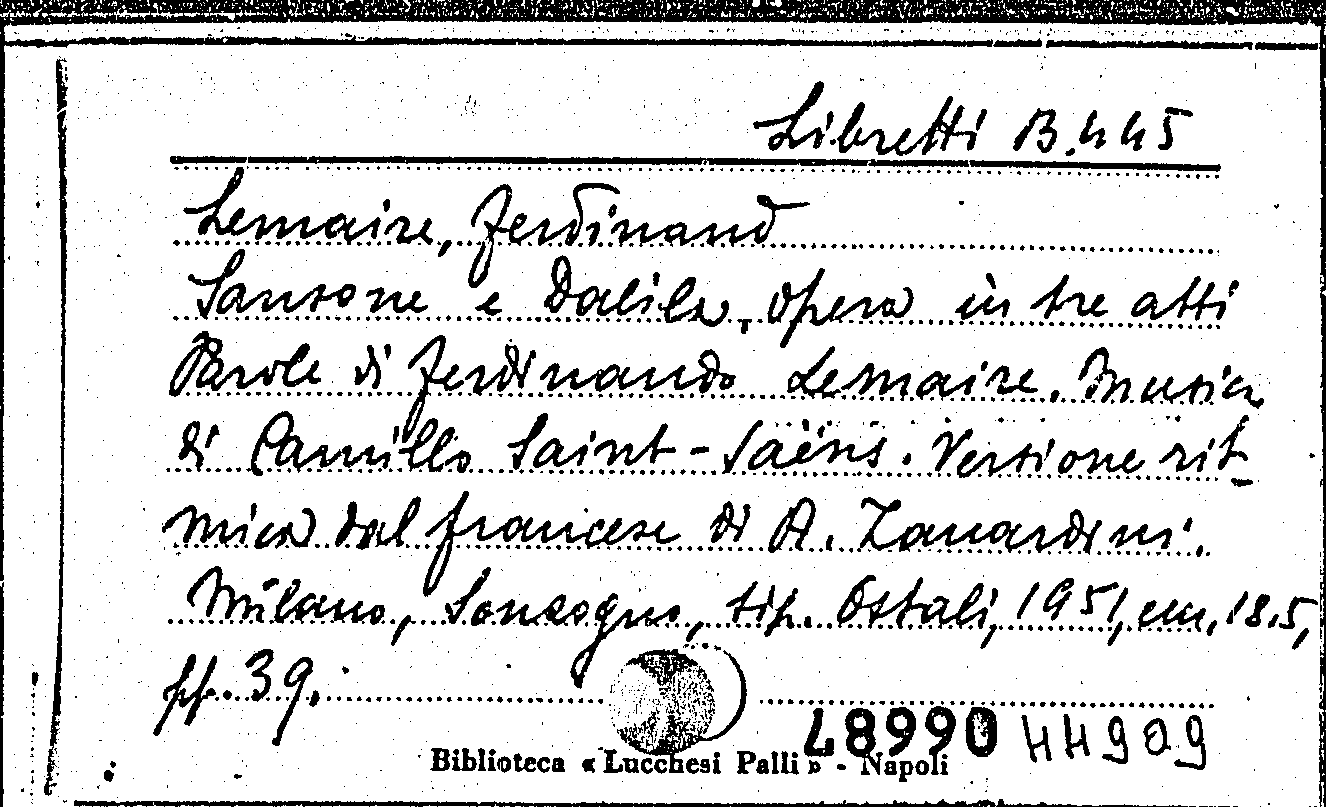 Libretti B.445
Lemaire, Ferdinand
Sansone e Dalila, opera in tre atti
Parole di Ferdinando Lemaire. Musica
di Camillo Saint-Saëns. Versione rit-
mica dal francese di A. Zanardini.
Milano, Sonzogno, tip. Ostali, 1951, cm. 18.5,
pp. 39.
48990 44909
Biblioteca « Lucchesi Palli » - Napoli